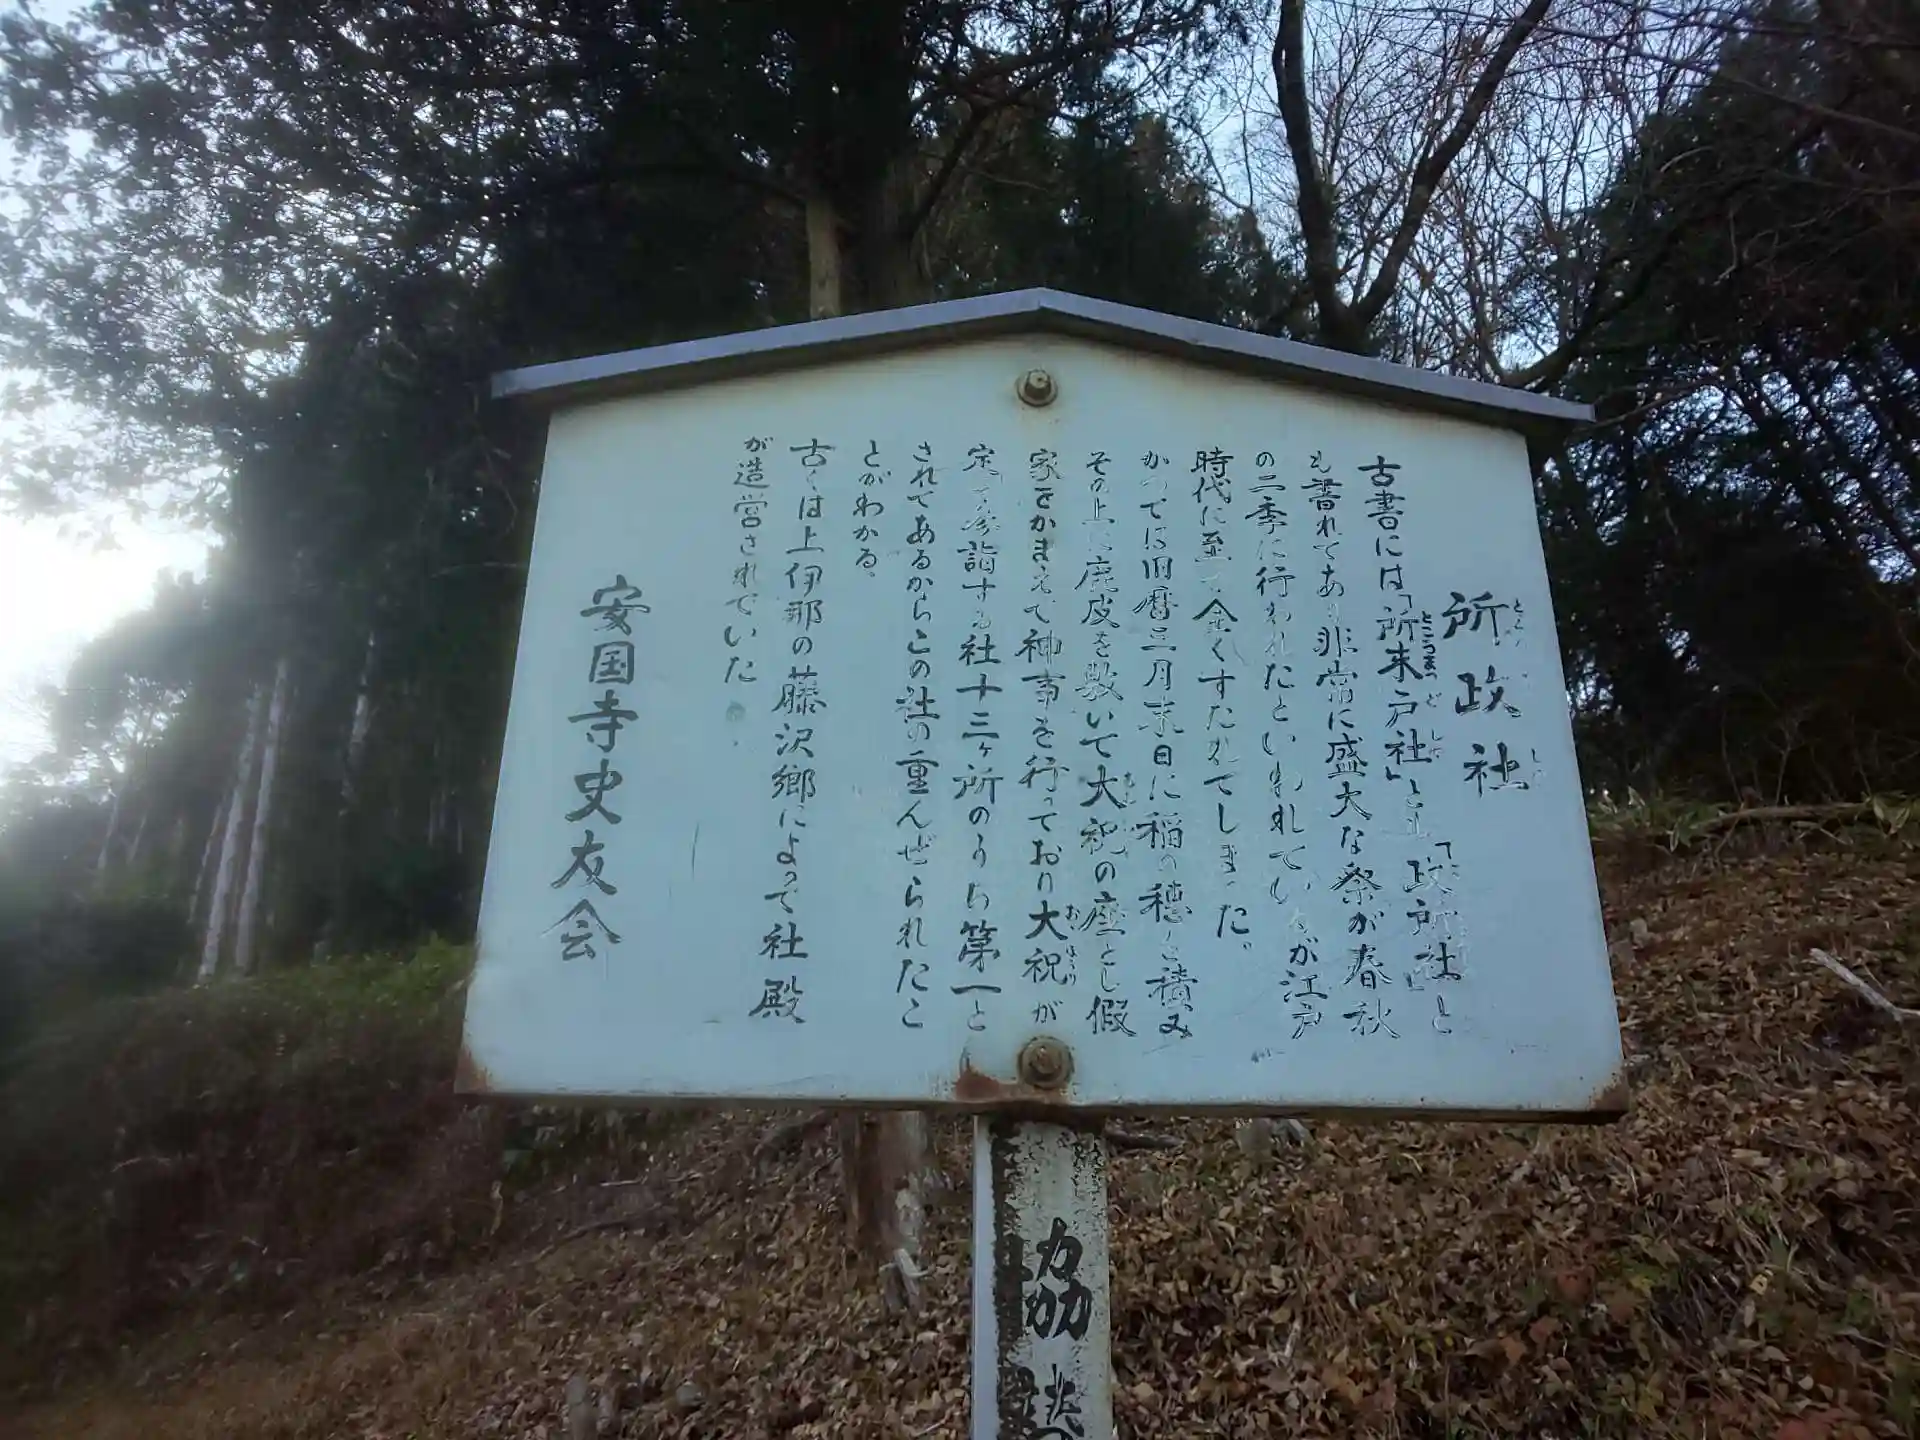 所政社
古書には「所末戸社」とか「政所社」と
も書れてある非常に盛大な祭が春秋
の二季に行われたといわれているが江戸
時代に至って全くすたれてしまった。
かつては旧暦三月末日に稲の穂を積み
その上に鹿皮を敷いて大祝の座とし假
家をかまえて神事を行っており大祝が
定って参詣する社十三ヶ所のうち第一と
されてあるからこの社の重んぜられたこ
とがわかる。
古くは上伊那の藤沢郷によって社殿
が造営されていた。
安国寺史友会
協